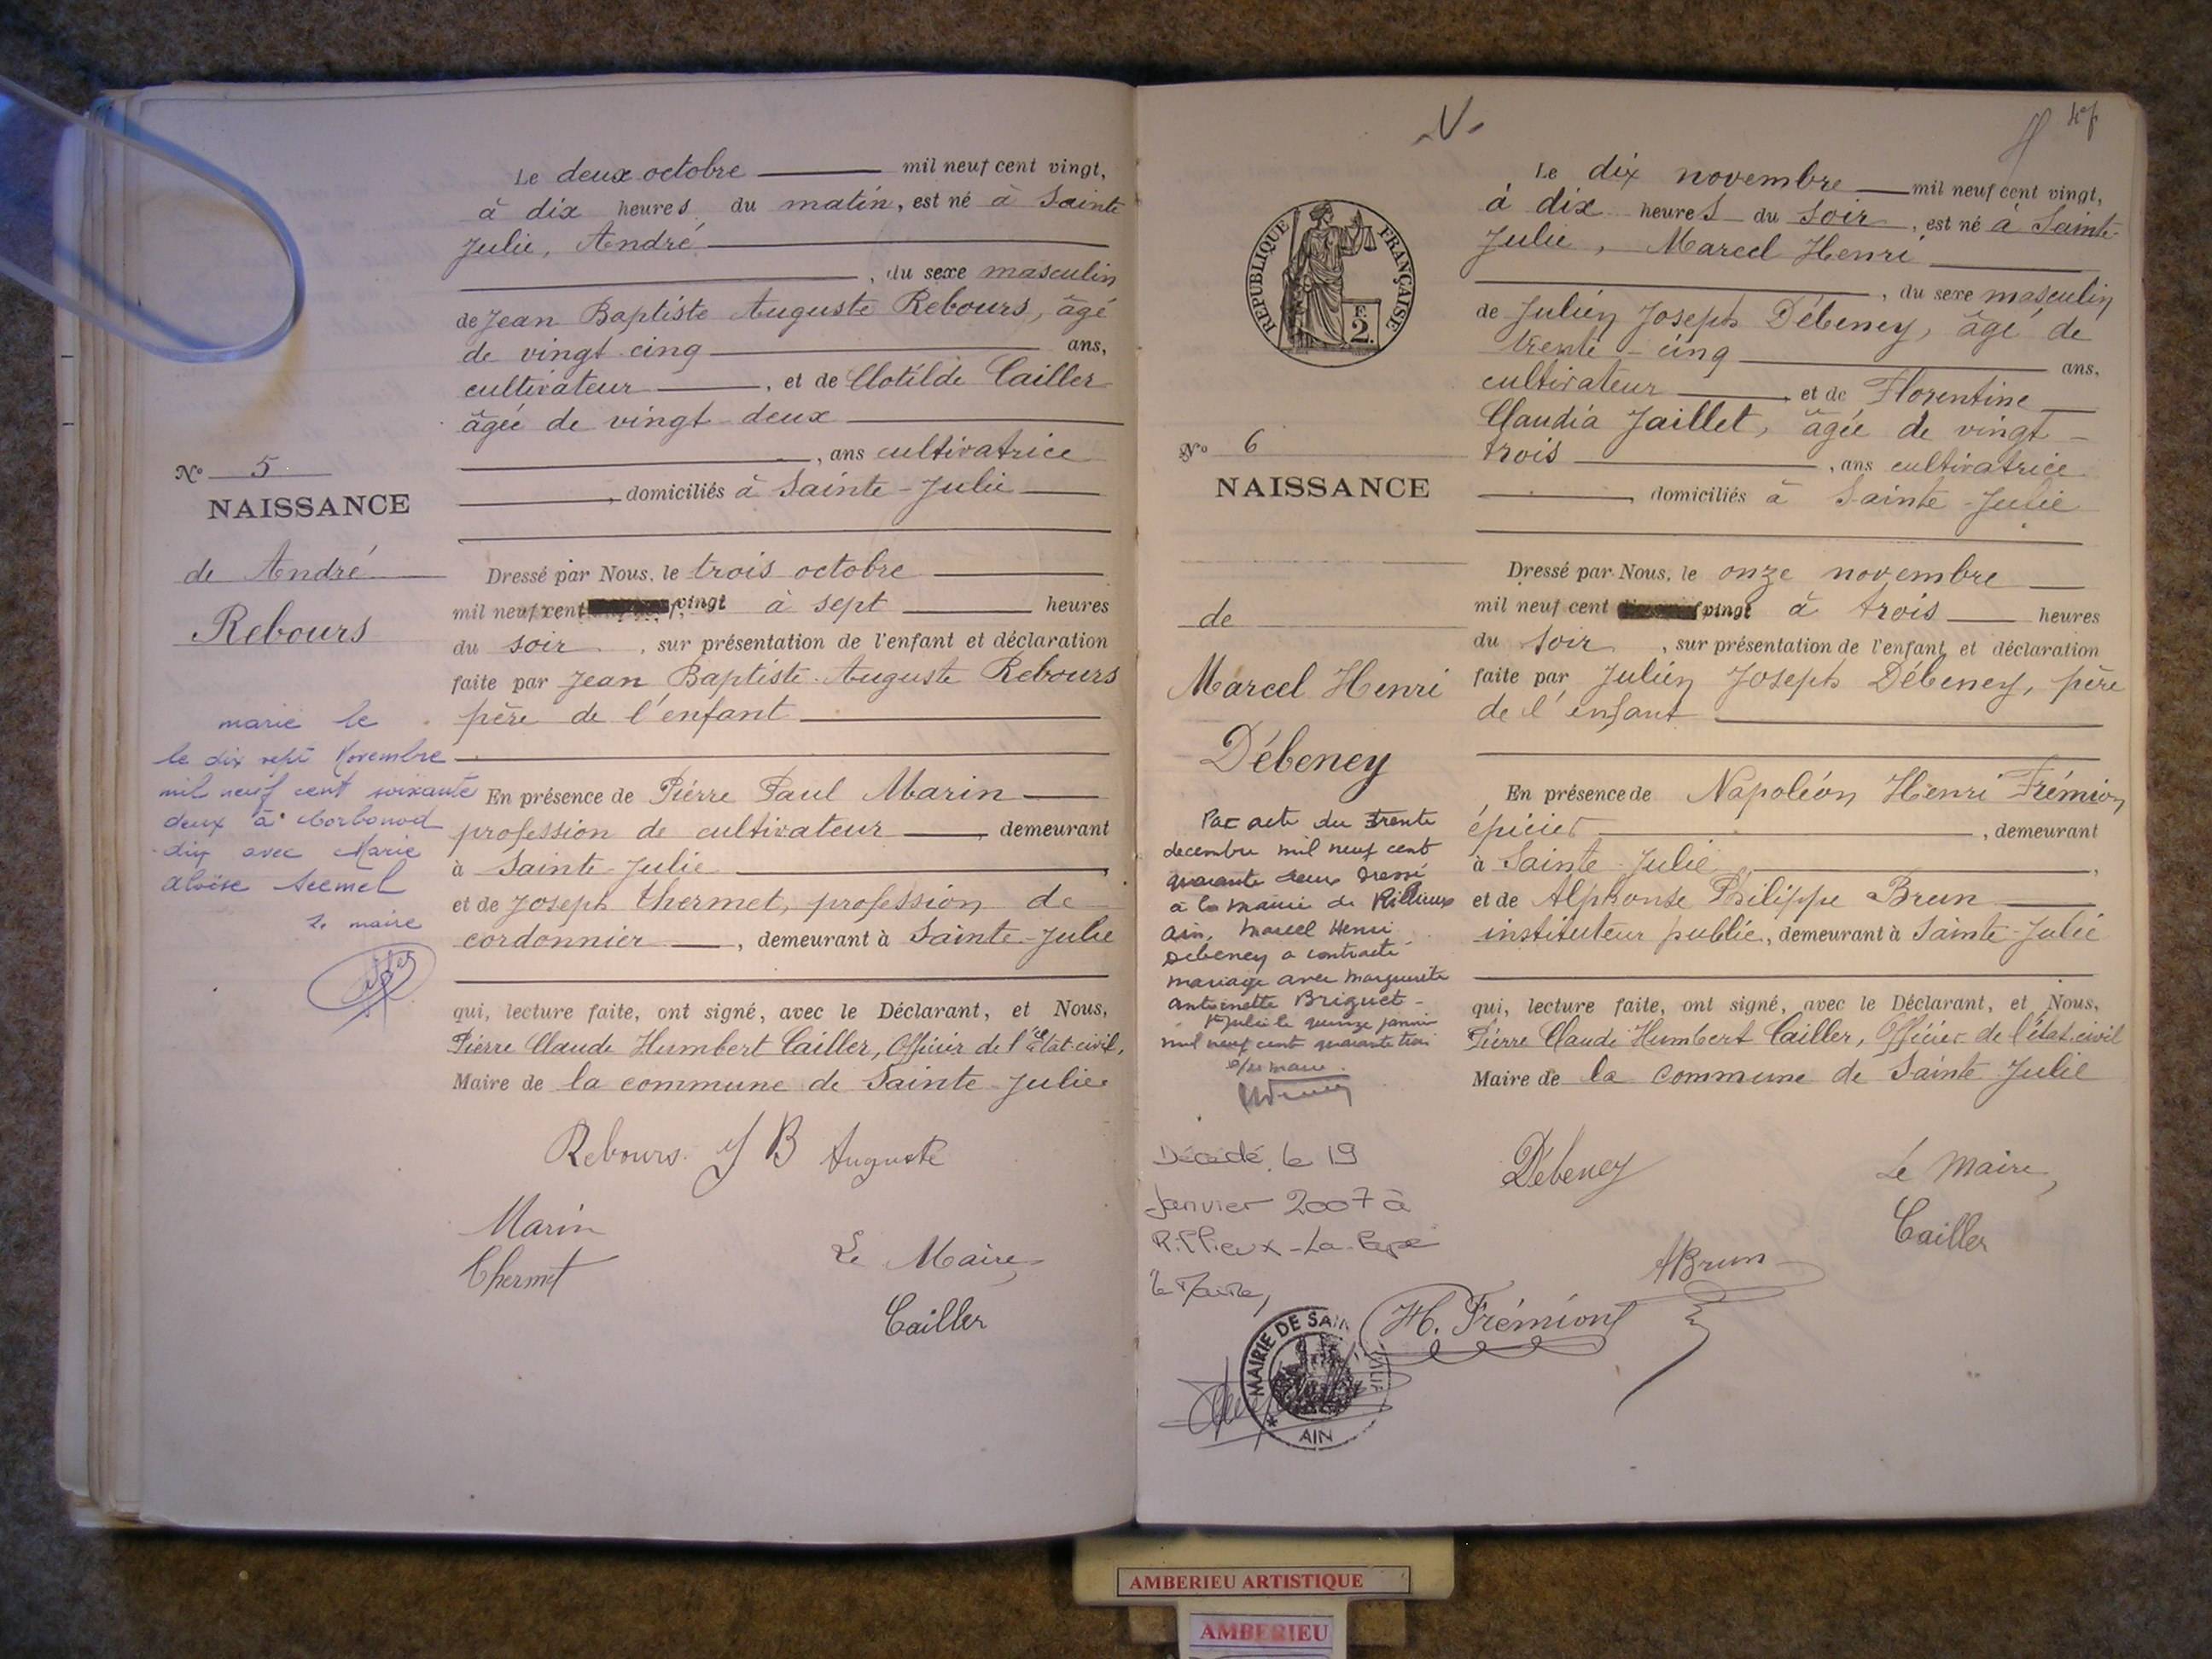 Le deux octobre mil neuf cent vingt,
à dix heures du matin, est né à Sainte
Julie, André
, du sexe masculin
de Jean Baptiste Auguste Rebours, âgé
de vingt cinq ans,
cultivateur , et de Clotilde Cailler
âgée de vingt-deux
, ans cultivatrice
, domiciliés à Sainte-Julie
Nº 5
NAISSANCE
de André
Rebours
Dressé par Nous, le trois octobre
mil neuf cent vingt à sept heures
du soir , sur présentation de l'enfant et déclaration
faite par Jean Baptiste Auguste Rebours
père de l'enfant
marié le
le dix sept Novembre
mil neuf cent soixante
deux à Corbonod
avec Marie
le maire
En présence de Pierre Paul Marin
profession de cultivateur , demeurant
à Sainte-Julie
et de Joseph Thermet, profession de
cordonnier , demeurant à Sainte-Julie
qui, lecture faite, ont signé, avec le Déclarant, et Nous,
Pierre Claude Humbert Cailler, Officier de l'Etat-civil,
Maire de la commune de Sainte-Julie
Rebours J B Auguste
Marin
Thermet
Le Maire,
Cailler
Le dix novembre mil neuf cent vingt,
à dix heures du soir , est né à Sainte-
Julie, Marcel Henri
, du sexe masculin
de Julien Joseph Débeney, âgé de
trente-cinq ans,
cultivateur , et de Florentine
Claudia Jaillet, âgée de vingt-
trois , ans cultivatrice
, domiciliés à Sainte-Julie
REPUBLIQUE FRANÇAISE
F. 2.
Nº 6
NAISSANCE
de
Marcel Henri
Débeney
Dressé par Nous, le onze novembre
mil neuf cent vingt à trois heures
du soir , sur présentation de l'enfant et déclaration
faite par Julien Joseph Débeney, père
de l'enfant
En présence de Napoléon Henri Frémion
épicier , demeurant
à Sainte-Julie ,
et de Alphonse Philippe Brun
instituteur public, demeurant à Sainte-Julie
qui, lecture faite, ont signé, avec le Déclarant, et Nous,
Pierre Claude Humbert Cailler, Officier de l'état-civil
Maire de la commune de Sainte Julie
Par acte du trente
decembre mil neuf cent
quarante deux dressé
a la mairie de Rillieux
Ain, Marcel Henri
Debeney a contracté
mariage avec Marguerite
Antoinette Briguet -
Ste Julie le quinze janvier
mil neuf cent quarante trois
le maire
Décédé le 19
Janvier 2007 à
Rillieux-La-Pape
Le Maire,
Débeney
Le Maire,
Cailler
ABrun
H. Frémion
MAIRIE DE SAIN
AIN
AMBERIEU ARTISTIQUE
AMBERIEU